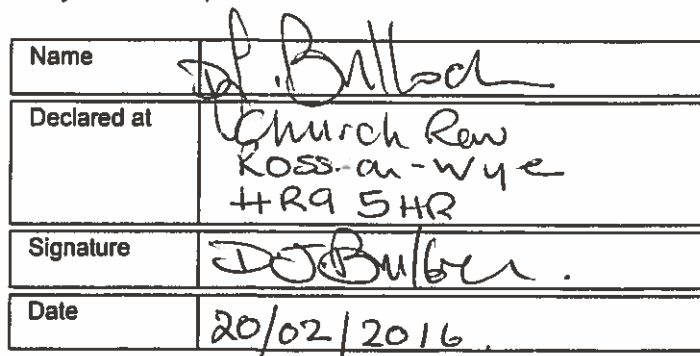 Name D.J. Bulloch
Declared at Church Row
Ross-on-Wye
HR9 5HR
Signature DJ
Date 20/02/2016.